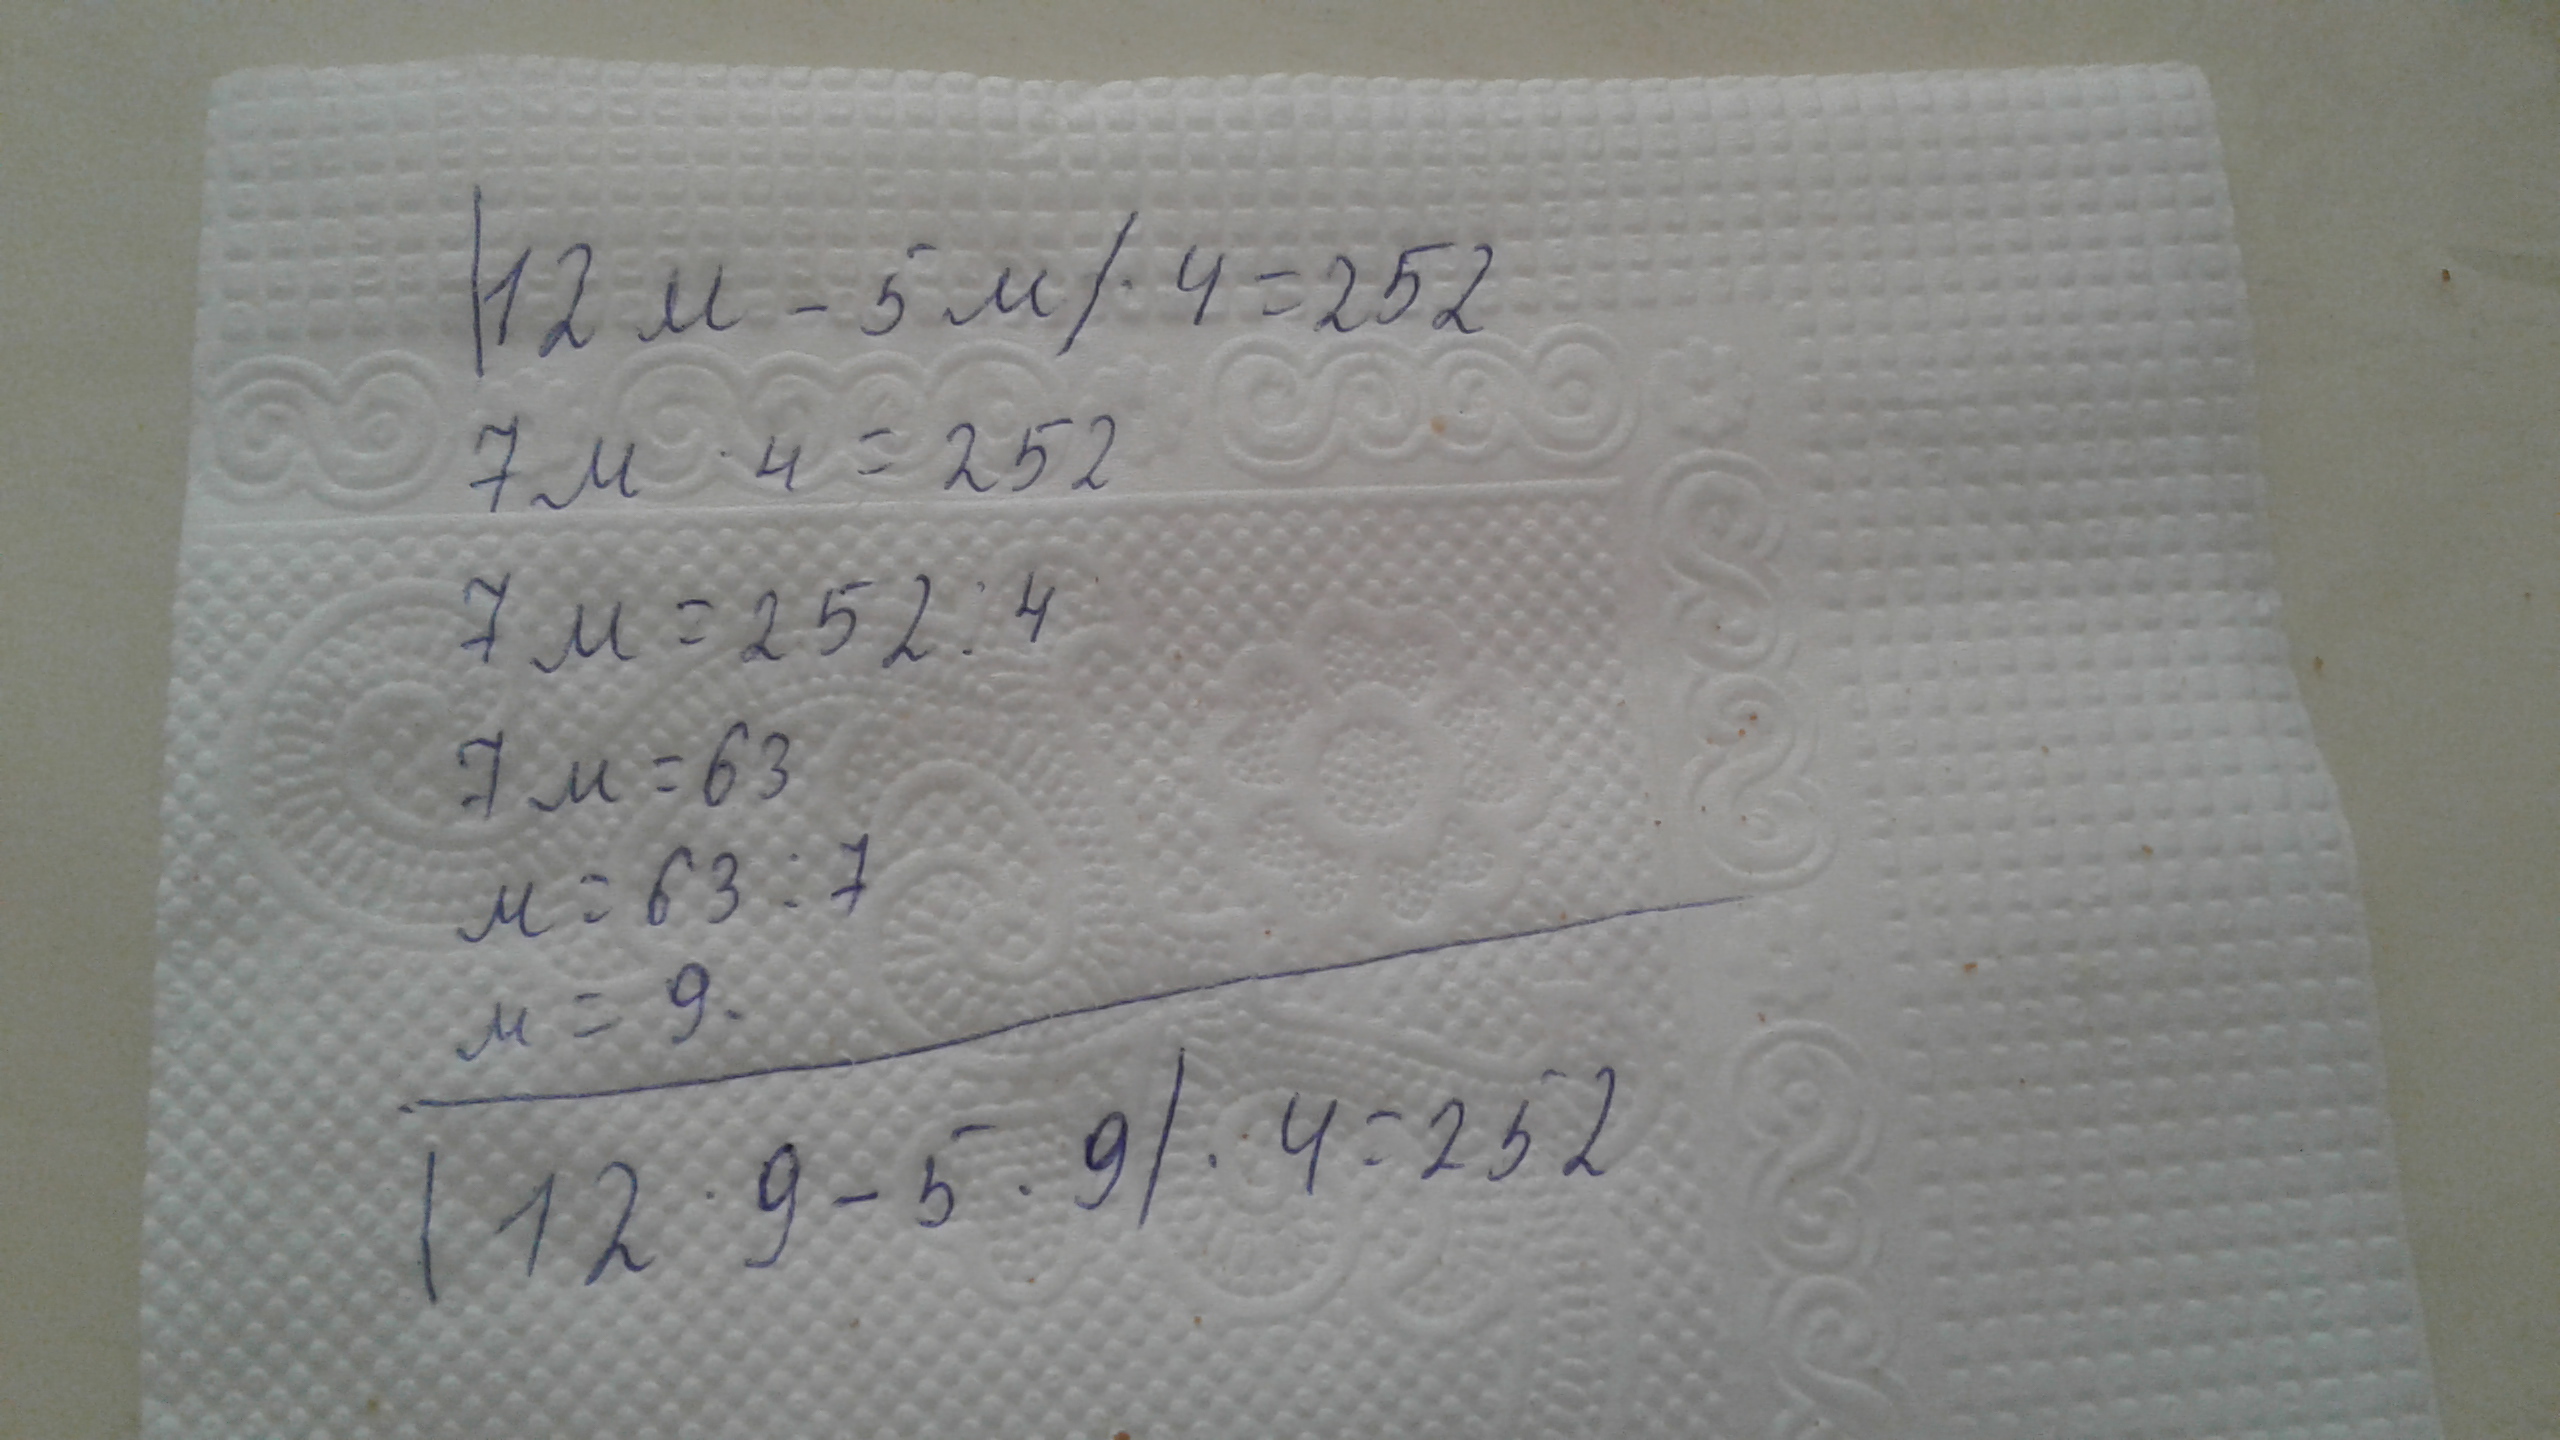 |12м - 5м/ · 4 = 252
7м · 4 = 252
7м = 252 : 4
7м = 63
м = 63 : 7
м = 9.
| 12 · 9 - 5 · 9/ · 4 = 252